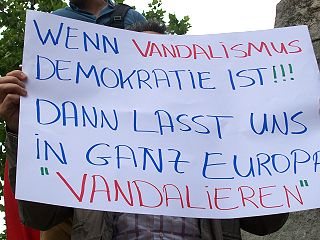 WENN VANDALISMUS
DEMOKRATIE IST!!!
DANN LASST UNS
IN GANZ EUROPA
"VANDALIEREN"